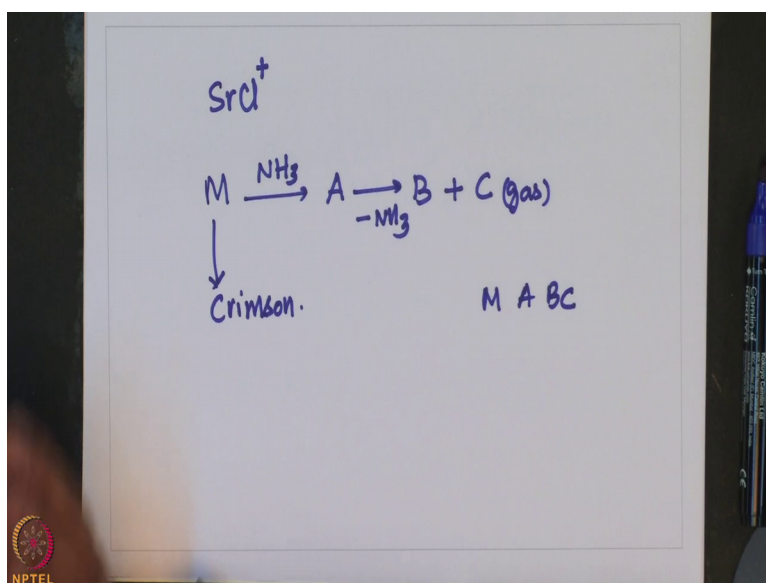 SrCl⁺
M NH₃→ A →-NH₃ B + C (gas)
↓
Crimson.
M A BC
NPTEL